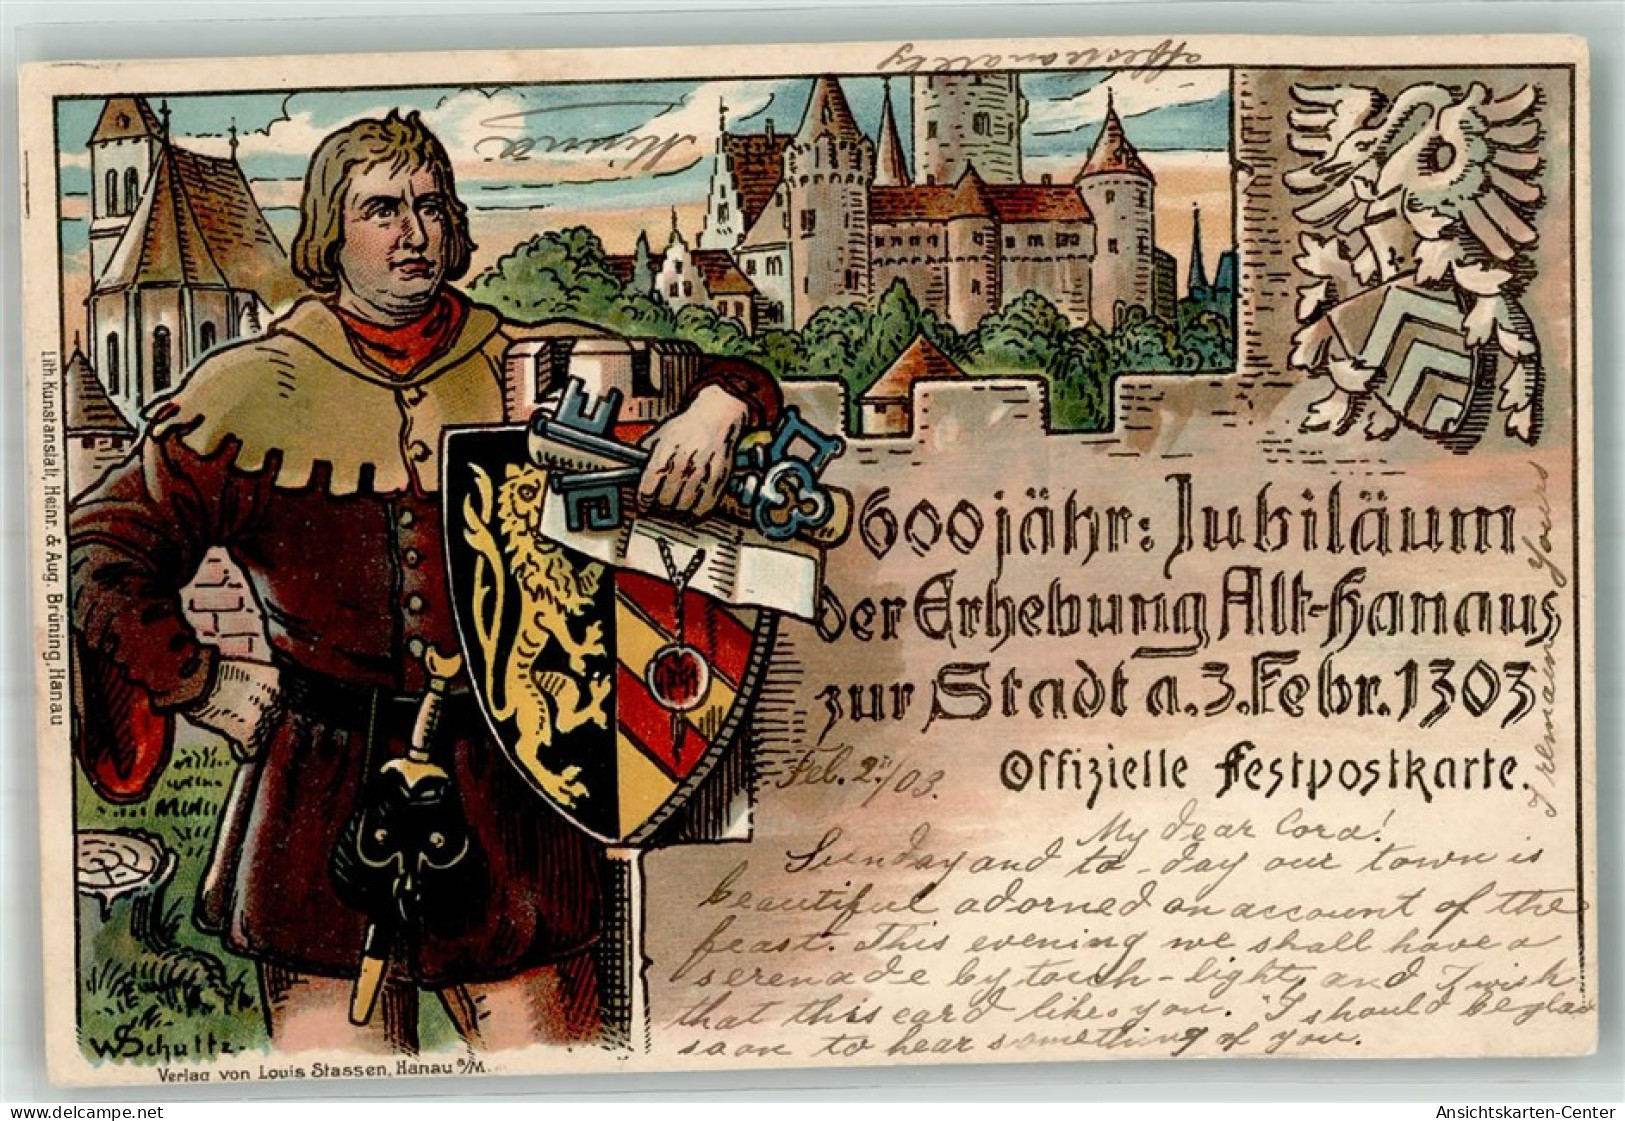 600jähr: Jubiläum
der Erhebung Alt-Hanaus
zur Stadt a. 3. Febr. 1303
Offizielle Festpostkarte.
Feb. 2./03.
My dear Cora!
Sunday and to-day our town is
beautiful adorned on account of the
feast. This evening we shall have a
serenade by torch-light, and I wish
that this card likes you. I should be glad
soon to hear something of you.
I remain Yours
affectionately
Minna
Lith. Kunstanstalt, Heinr. & Aug. Brüning, Hanau
W Schultz.
Verlag von Louis Stassen, Hanau a/M.
delcampe.net
hmcl2010
Ansichtskarten-Center